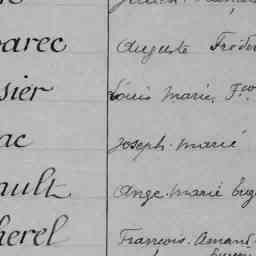 arec Auguste Fréder
sier Louis Marie Fco
ac Joseph Marie
ault Ange Marie Eug
herel François Amand